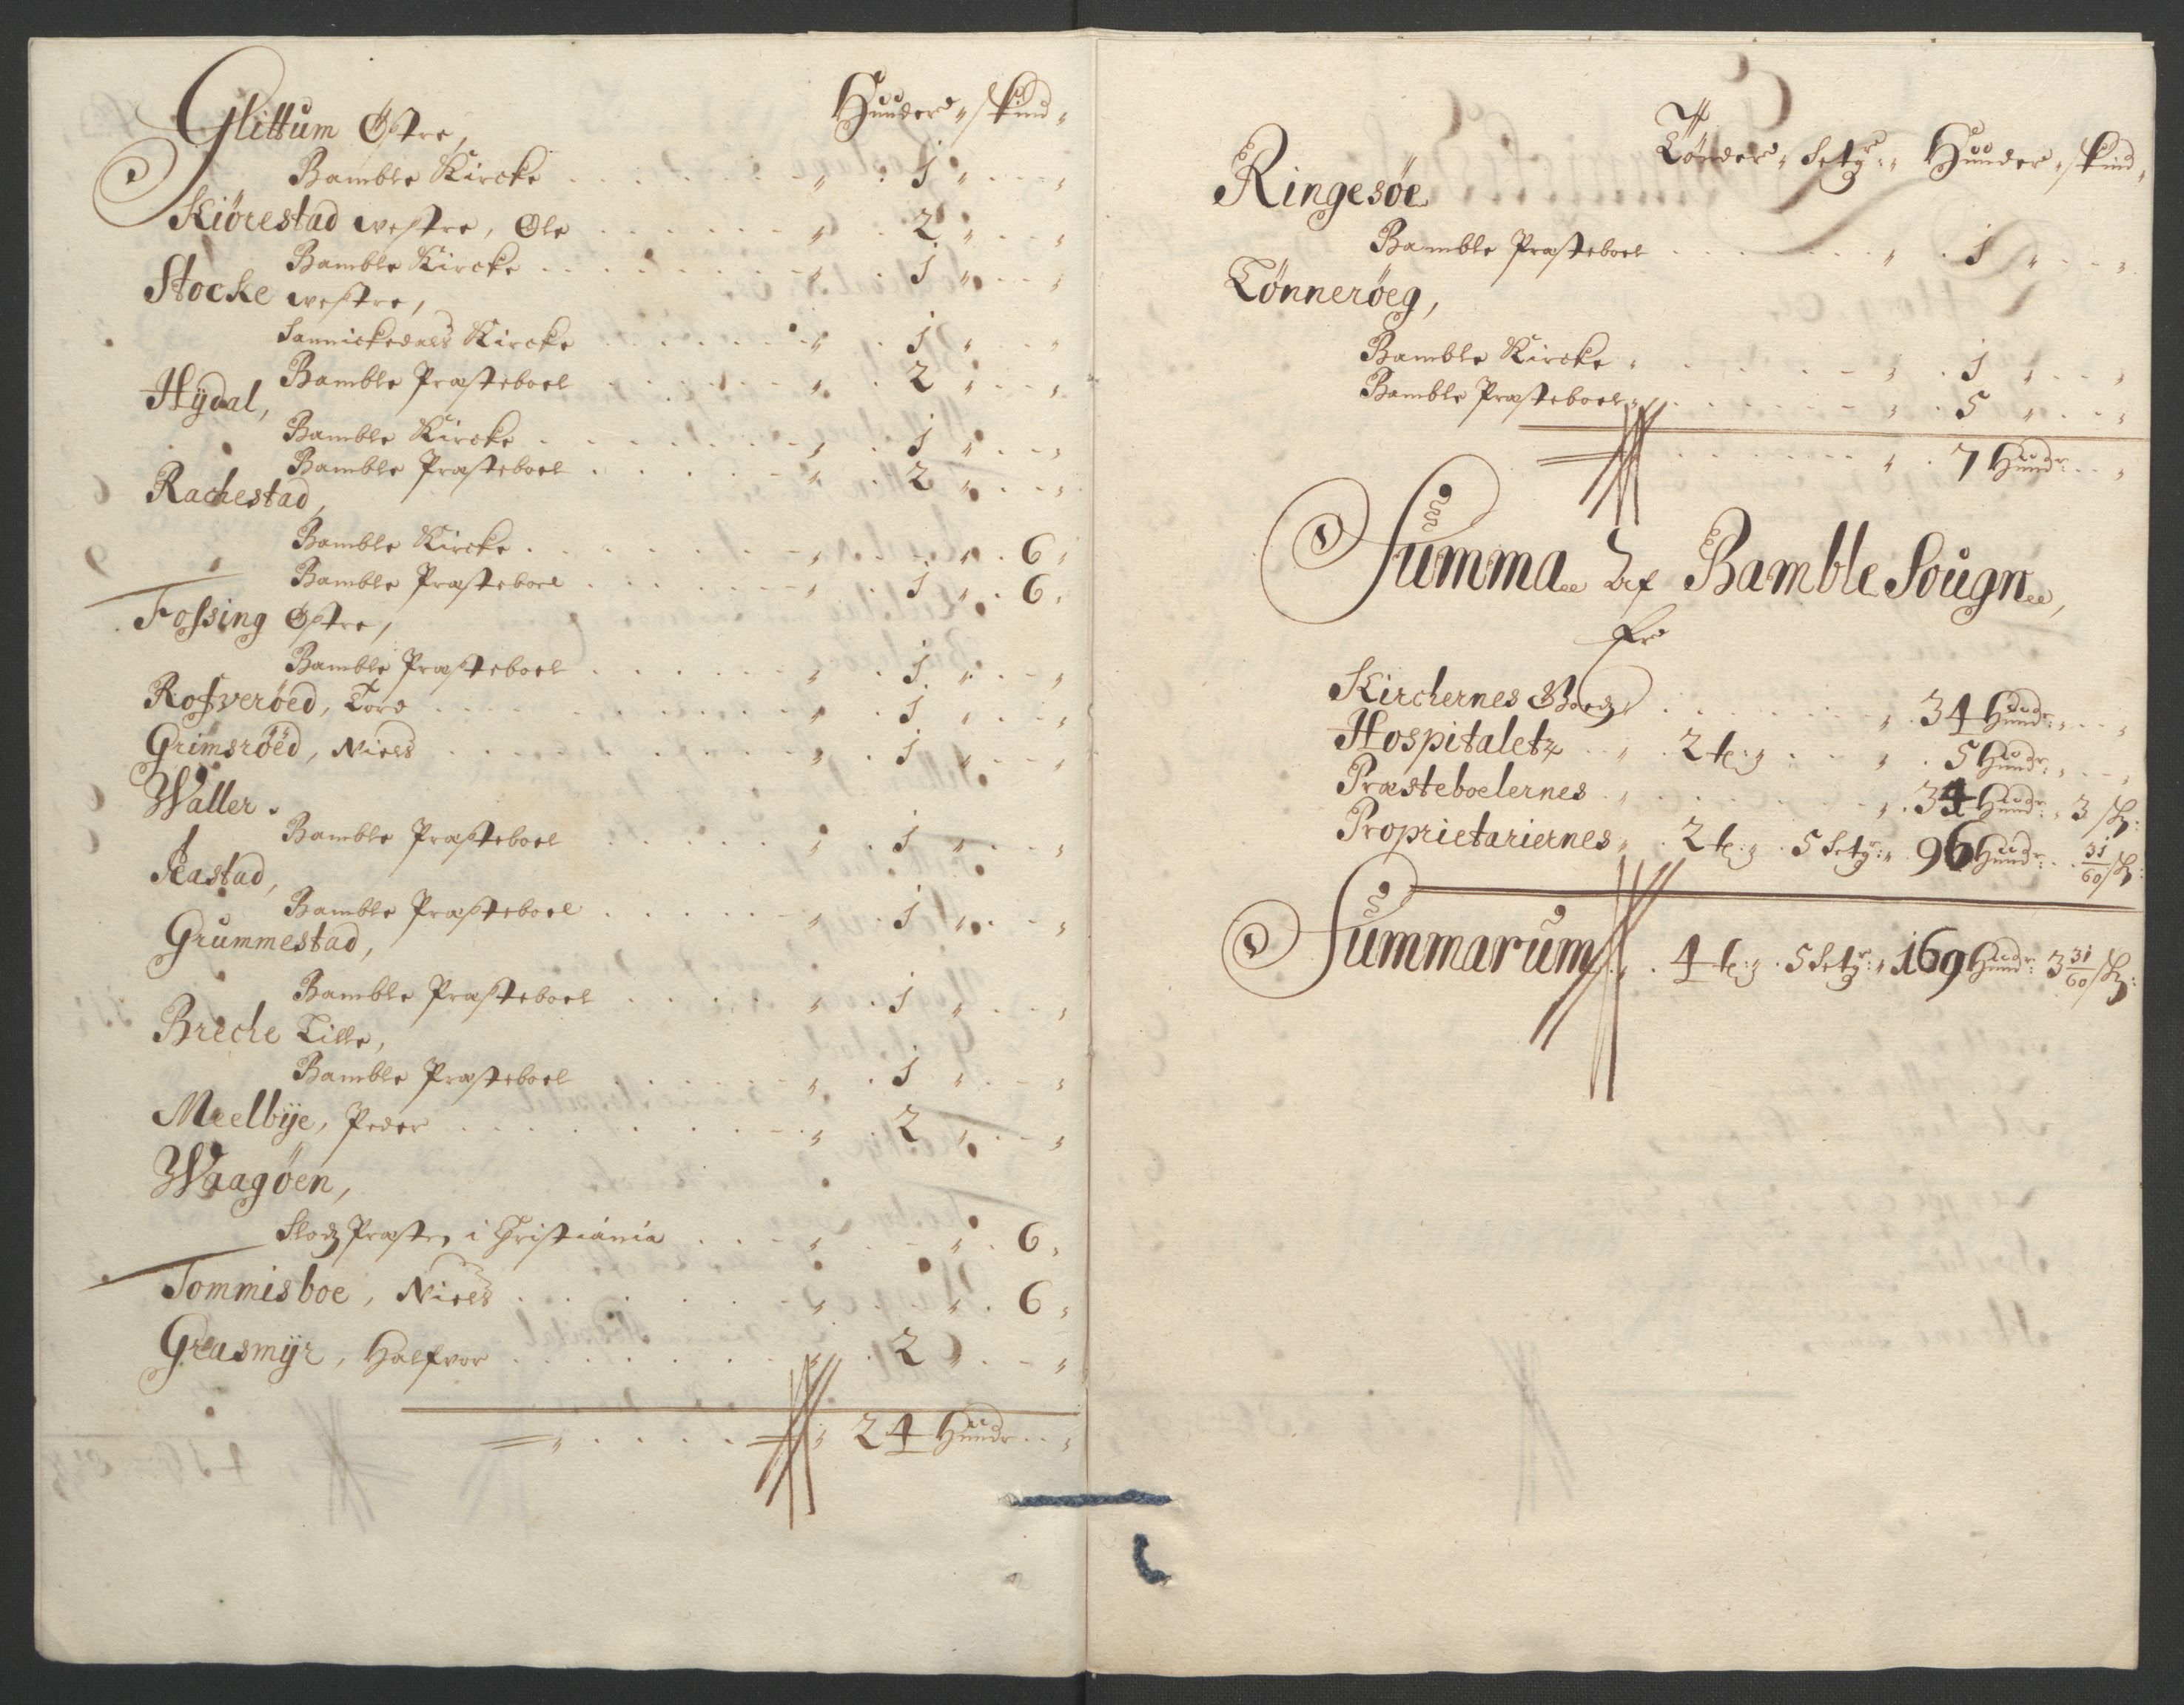 Huuder " skind "
Glittum Østre,
Bamble Kircke . . . . . . . " . 1 " . . . "
Kiörestad westre, Ole . . . . . . " . 2 " . . . "
Bamble Kircke . . . . . . . . " . 1 " . . . "
Stocke westre,
Sannickedals Kircke . . . . . . " . 1 " . . "
Bamble Præsteboel . . . . . . " . 2 " . . . "
Hÿdal,
Bamble Kircke . . . . . . . . " . 1 " . . . "
Bamble Præsteboel . . . . . . " . 2 " . . . "
Rachestad,
Bamble Kircke . . . . . . . . " . . . " . 6 "
Bamble Præsteboel . . . . . . " . 1 " . 6 "
Fossing Østre,
Bamble Præsteboel . . . . . . " . 1 " . . . "
Rosverøed, Tord . . . . . . . . " . 1 " . . . "
Grimsröëd, Niels . . . . . . . . " . 1 " . . . "
Waller.
Bamble Præsteboel . . . . . . " . 1 " . . . "
Aastad,
Bamble Præsteboel . . . . . . " . 1 " . . . "
Grummestad,
Bamble Præsteboel . . . . . . " . 1 " . . . "
Breche Lille,
Bamble Præsteboel . . . . . . " . 1 " . . . "
Meelbÿe, Peder . . . . . . . . " . 2 " . . . "
Waagöen,
Slodz Præsten i Christiania . . . " . . . " . 6 "
Tommisboe, Niels . . . . . . . " . . . " . 6 "
Greasmÿr, Halfvor . . . . . . . " . 2 " . . . "
" . . . . " 24 Hundr . . "
Tönder " Setgr: " Hunder " skind "
Ringesöe
Bamble Præsteboel . . . . . . . " . 1 " . . . "
Tönneröeg,
Bamble Kircke " . . . . . . . " . 1 " . . . "
Bamble Præsteboel " . . . . . . " . 5 " . . . "
. . . . . . . " . 7 Hundr: . . "
Summa Af Bamble Sougn,
Er
Kirchernes Goedz . . . . . . . " . 34 Hundr: " . . . "
Hospitaletz . . " . 2 t: " . . . " . 5 Hundr: " . . . "
Præsteboelernes . " . . . . . . " . 34 Hundr: " 3 sk:
Proprietariernes " . 2 t: " . 5 Setgr: " . 96 Hundr: . . 31/60 sk:
Summarum " . 4 t: " . 5 Setgr: " 169 Hundr: 3 31/60 sk: